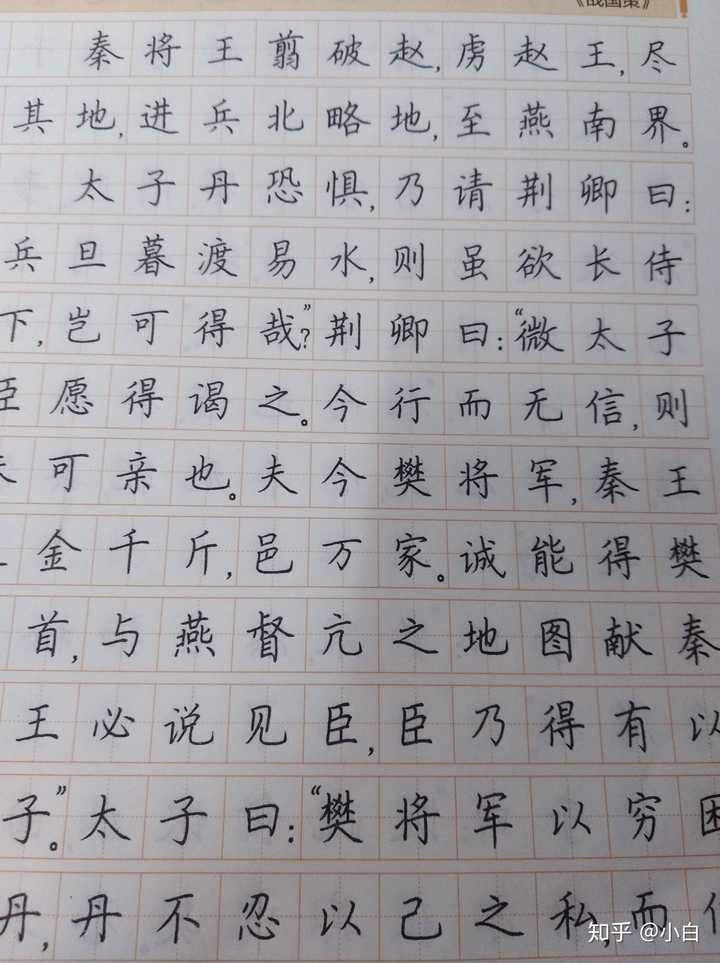 《战国策》
秦将王翦破赵，虏赵王，尽
其地，进兵北略地，至燕南界。
太子丹恐惧，乃请荆卿曰：
兵旦暮渡易水，则虽欲长侍
下，岂可得哉”？荆卿曰：“微太子
臣愿得谒之。今行而无信，则
可亲也。夫今樊将军，秦王
金千斤，邑万家。诚能得樊
首，与燕督亢之地图献秦
王必说见臣，臣乃得有以
子”。太子曰：“樊将军以穷困
丹，丹不忍以己之私，而
知乎 @小白